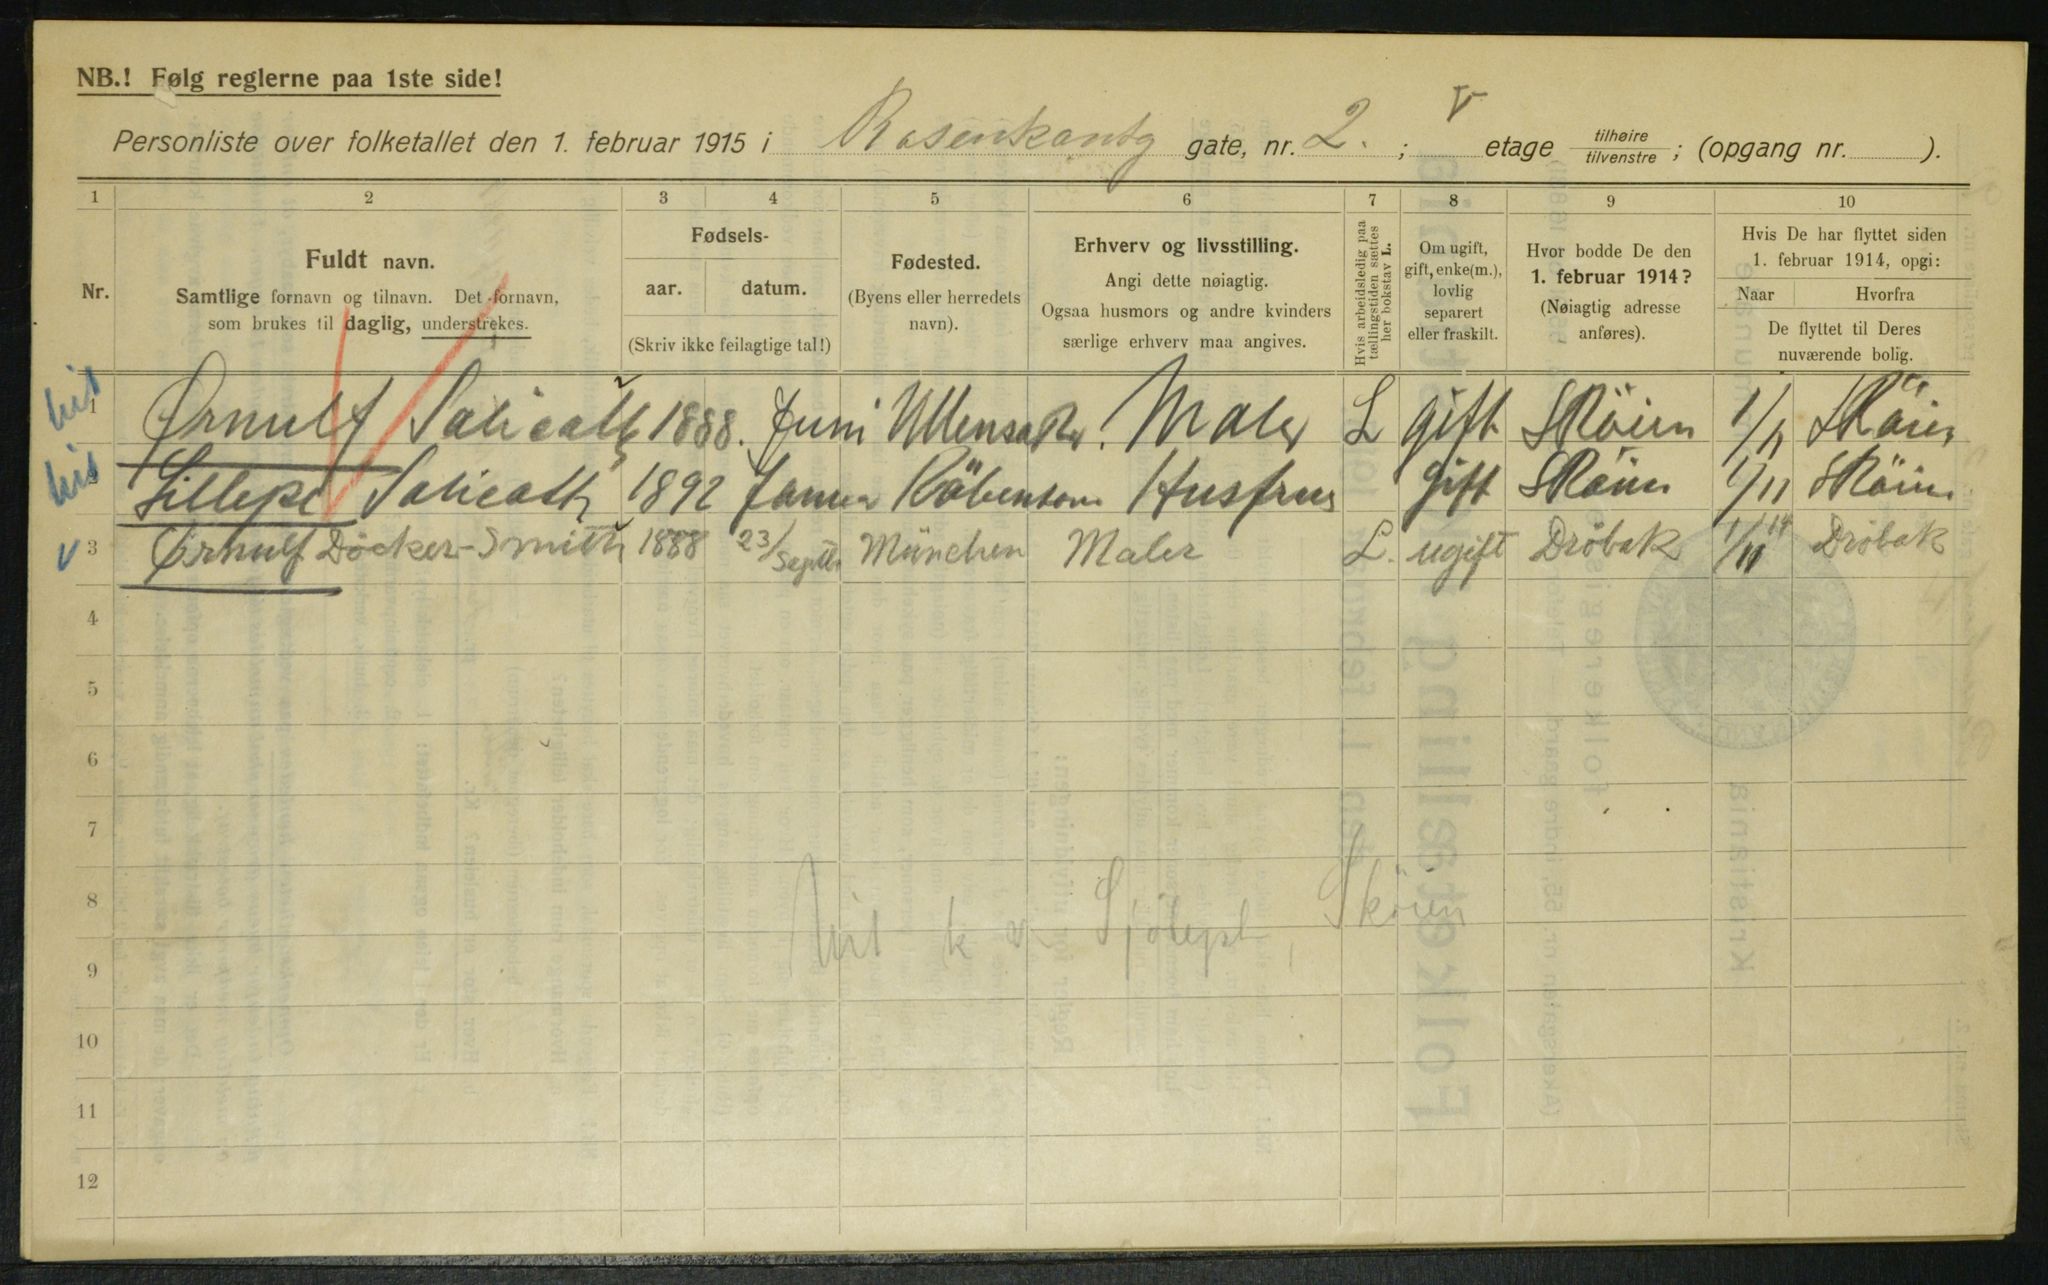 NB.! Følg reglerne paa 1ste side!
Personliste over folketallet den 1. februar 1915 i Rosenkantz gate, nr. 2. ; V etage tilhøire / tilvenstre ; (opgang nr. ).
1 2 3 4 5 6 7 8 9 10
Nr.
Fuldt navn.
Samtlige fornavn og tilnavn. Det fornavn,
som brukes til daglig, understrekes.
Fødsels-
aar. datum.
(Skriv ikke feilagtige tal!)
Fødested.
(Byens eller herredets
navn).
Erhverv og livsstilling.
Angi dette nøiagtig.
Ogsaa husmors og andre kvinders
særlige erhverv maa angives.
Hvis arbeidsledig paa
tællingstiden sættes
her bokstav L.
Om ugift,
gift, enke(m.),
lovlig
separert
eller fraskilt.
Hvor bodde De den
1. februar 1914?
(Nøiagtig adresse
anføres).
Hvis De har flyttet siden
1. februar 1914, opgi:
Naar Hvorfra
De flyttet til Deres
nuværende bolig.
1 Ørnulf Salicath 1888. Juni Ullensaker. Maler L gift Sköien 1/11 Sköien
2 Salicath 1892 Köbenhavn Husfrue gift Sköien 1/11 Sköien
v 3 Ørnulf Döcker-Smith 1888 23/Septb. München Maler L. ugift Dröbak 1/11 14 Dröbak
4
5
6
7
8 Sköien
9
10
11
12